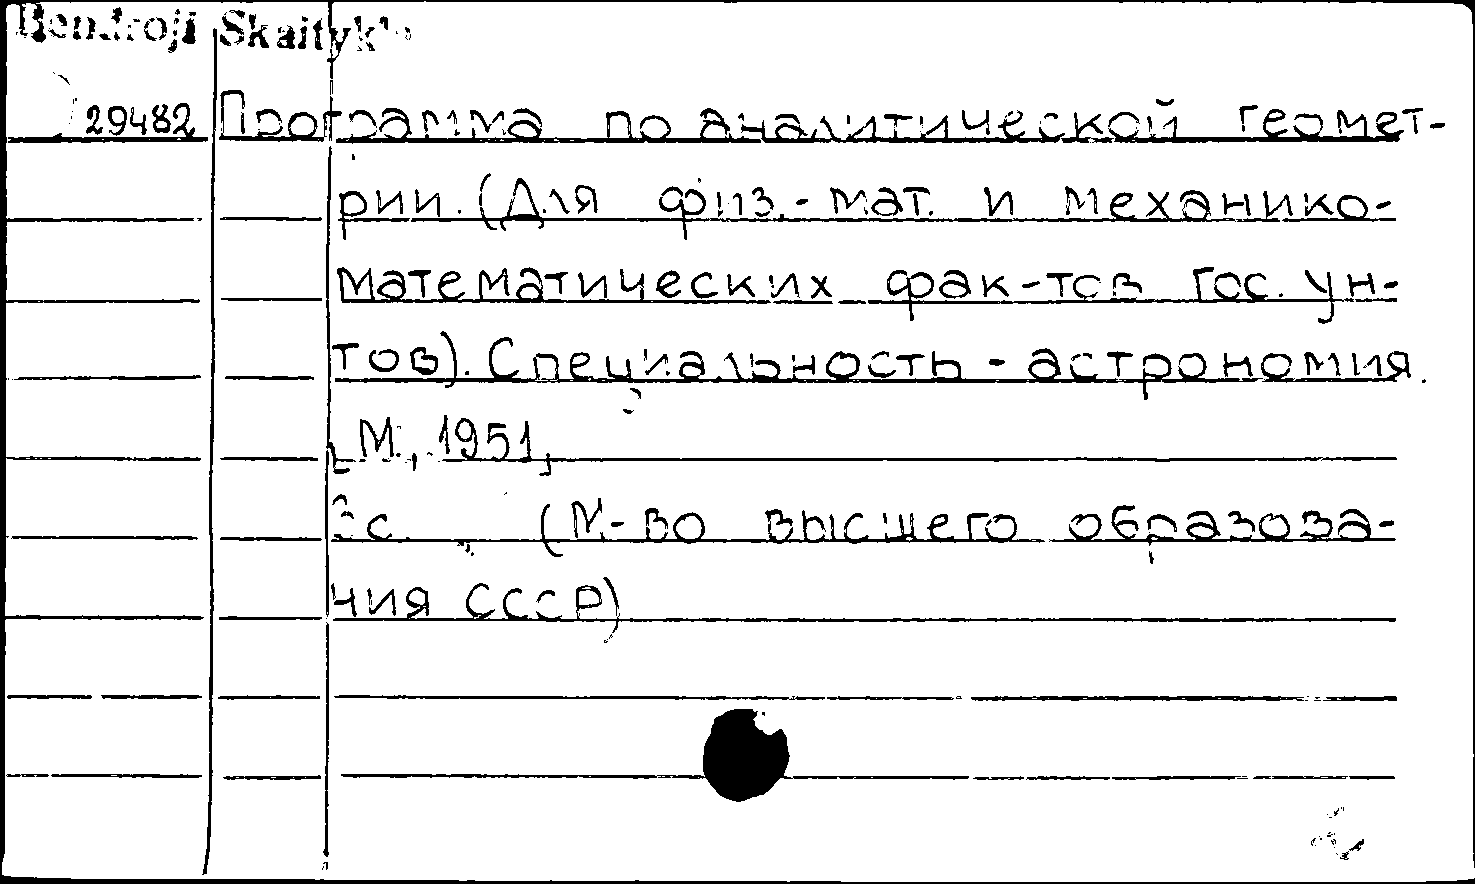 Bendroji Skaitykla
29482 Программа по аналитической геомет-
рии. (Для физ.-мат. и механико-
математических фак-тов гос. ун-
тов). Специальность - астрономия.
[М., 1951]
3с. (М-во высшего образова-
ния СССР)